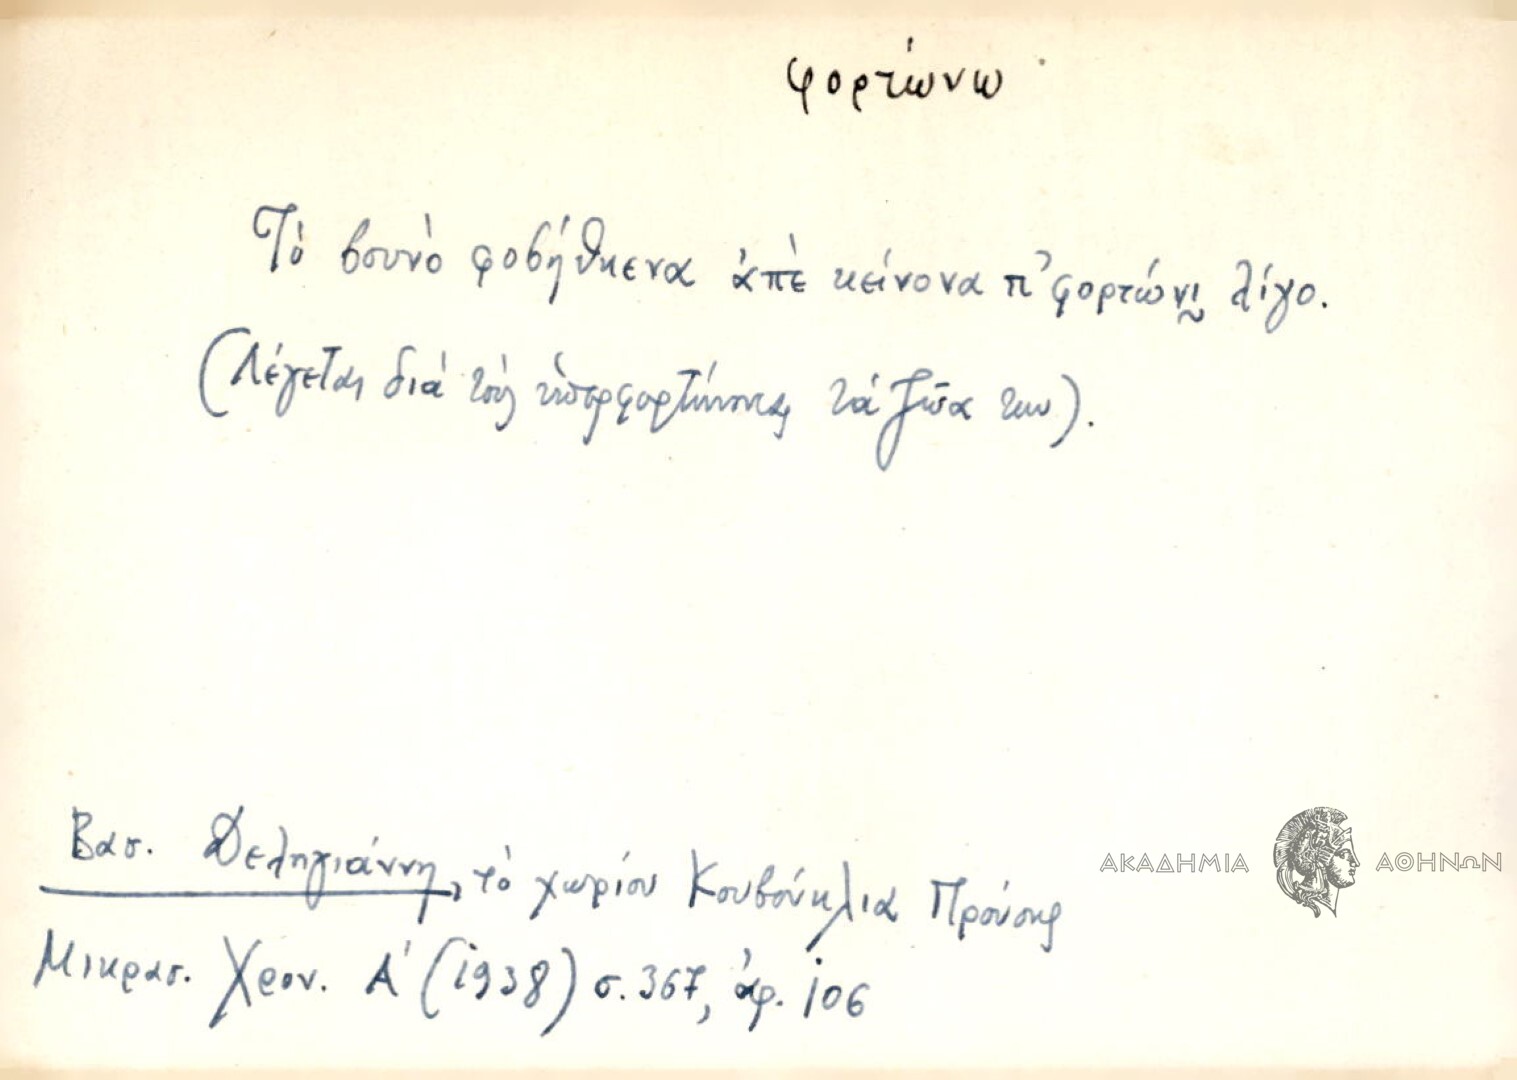 φορτώνω
Τὸ βουνὸ φοβήθκενα ἀπὲ κείνονα π' φορτώνι λίγο.
(Λέγεται διὰ τοὺς ὑπερφορτώνοντας τὰ ζῶα των).
Βασ. Δεληγιάννη, τὸ χωρίον Κουβούκλια Προύσης
Μικρασ. Χρον. Α' (1938) σ. 367, ἀρ. 106
ΑΚΑΔΗΜΙΑ ΑΘΗΝΩΝ